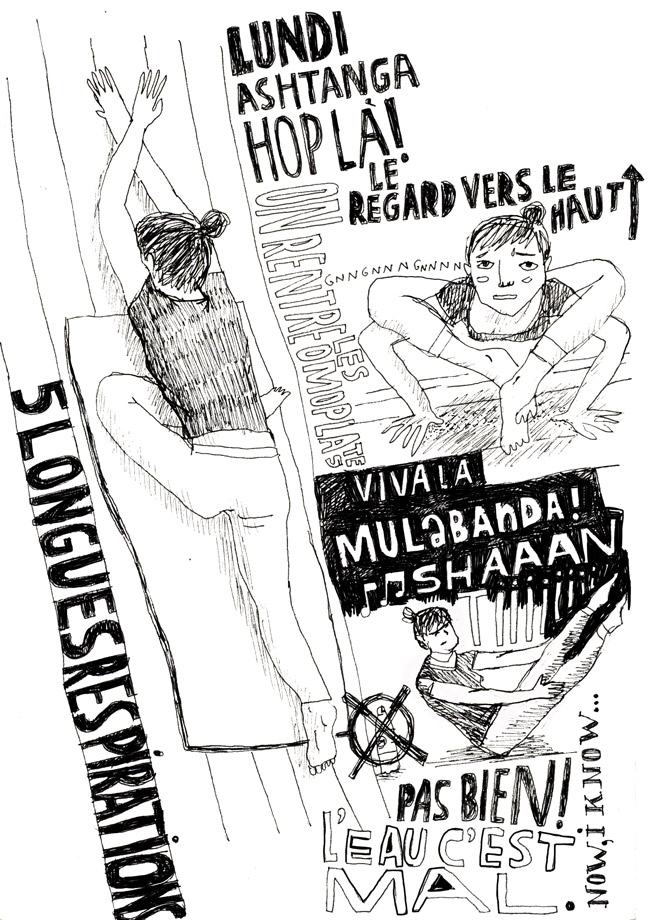 LUNDI
ASHTANGA
HOP LÀ!
LE
REGARD VERS LE
HAUT
GNNGNNNGNNNN
ON RENTRE LES
OMOPLATES
5 LONGUES RESPIRATIONS
VIVA LA
MULaBANDA!
SHAAAN
TIIIII
PAS BIEN!
L'EAU C'EST
MAL.
NOW, I KNOW...